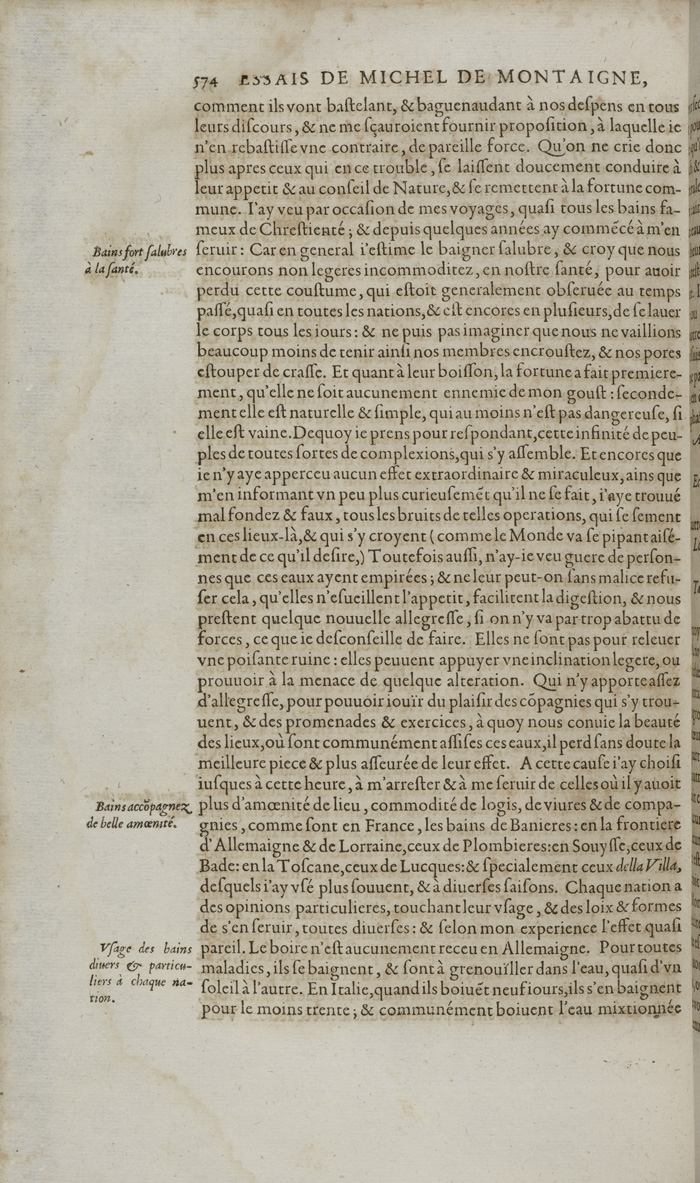 574 ESSAIS DE MICHEL DE MONTAIGNE,
comment ils vont baſtelant, & baguenaudant à nos deſpens en tous
leurs diſcours, & ne me ſçauroient fournir propoſition, à laquelle ie
n'en rebaſtiſſe vne contraire, de pareille force. Qu'on ne crie donc
plus apres ceux qui en ce trouble, ſe laiſſent doucement conduire à
leur appetit & au conſeil de Nature, & ſe remettent à la fortune com-
mune. I'ay veu par occaſion de mes voyages, quaſi tous les bains fa-
meux de Chreſtienté; & depuis quelques années ay commēcé à m'en
Bains fort ſalubres
à la ſanté.
ſeruir: Car en general i'eſtime le baigner ſalubre, & croy que nous
encourons non legeres incommoditez, en noſtre ſanté, pour auoir
perdu cette couſtume, qui eſtoit generalement obſeruée au temps
paſſé, quaſi en toutes les nations, & eſt encores en pluſieurs, de ſe lauer
le corps tous les iours: & ne puis pas imaginer que nous ne vaillions
beaucoup moins de tenir ainſi nos membres encrouſtez, & nos pores
eſtouper de craſſe. Et quant à leur boiſſon, la fortune a fait premiere-
ment, qu'elle ne ſoit aucunement ennemie de mon gouſt: ſeconde-
ment elle eſt naturelle & ſimple, qui au moins n'eſt pas dangereuſe, ſi
elle eſt vaine. Dequoy ie prens pour reſpondant, cette infinité de peu-
ples de toutes ſortes de complexions, qui s'y aſſemble. Et encores que
ie n'y aye apperceu aucun effet extraordinaire & miraculeux, ains que
m'en informant vn peu plus curieuſemēt qu'il ne ſe fait, i'aye trouué
mal fondez & faux, tous les bruits de telles operations, qui ſe ſement
en ces lieux-là, & qui s'y croyent (comme le Monde va ſe pipant aiſé-
ment de ce qu'il deſire,) Toutefois auſſi, n'ay-ie veu guere de perſon-
nes que ces eaux ayent empirées; & ne leur peut-on ſans malice refu-
ſer cela, qu'elles n'eſueillent l'appetit, facilitent la digeſtion, & nous
preſtent quelque nouuelle allegreſſe, ſi on n'y va par trop abattu de
forces, ce que ie deſconſeille de faire. Elles ne ſont pas pour releuer
vne poiſante ruine: elles peuuent appuyer vne inclination legere, ou
prouuoir à la menace de quelque alteration. Qui n'y apporte aſſez
d'allegreſſe, pour pouuoir iouïr du plaiſir des cōpagnies qui s'y trou-
uent, & des promenades & exercices, à quoy nous conuie la beauté
des lieux, où ſont communément aſſiſes ces eaux, il perd ſans doute la
meilleure piece & plus aſſeurée de leur effet. A cette cauſe i'ay choiſi
iuſques à cette heure, à m'arreſter & à me ſeruir de celles où il y auoit
Bains accōpagnez
de belle amœnité.
plus d'amœnité de lieu, commodité de logis, de viures & de compa-
gnies, comme ſont en France, les bains de Banieres: en la frontiere
d'Allemaigne & de Lorraine, ceux de Plombieres: en Souyſſe, ceux de
Bade: en la Toſcane, ceux de Lucques: & ſpecialement ceux della Villa,
deſquels i'ay vſé plus ſouuent, & à diuerſes ſaiſons. Chaque nation a
des opinions particulieres, touchant leur vſage, & des loix & formes
de s'en ſeruir, toutes diuerſes: & ſelon mon experience l'effet quaſi
Vſage des bains
diuers & particu-
liers à chaque na-
tion.
pareil. Le boire n'eſt aucunement receu en Allemaigne. Pour toutes
maladies, ils ſe baignent, & ſont à grenouïller dans l'eau, quaſi d'vn
ſoleil à l'autre. En Italie, quand ils boiuēt neuf iours, ils s'en baignent
pour le moins trente; & communément boiuent l'eau mixtionnée